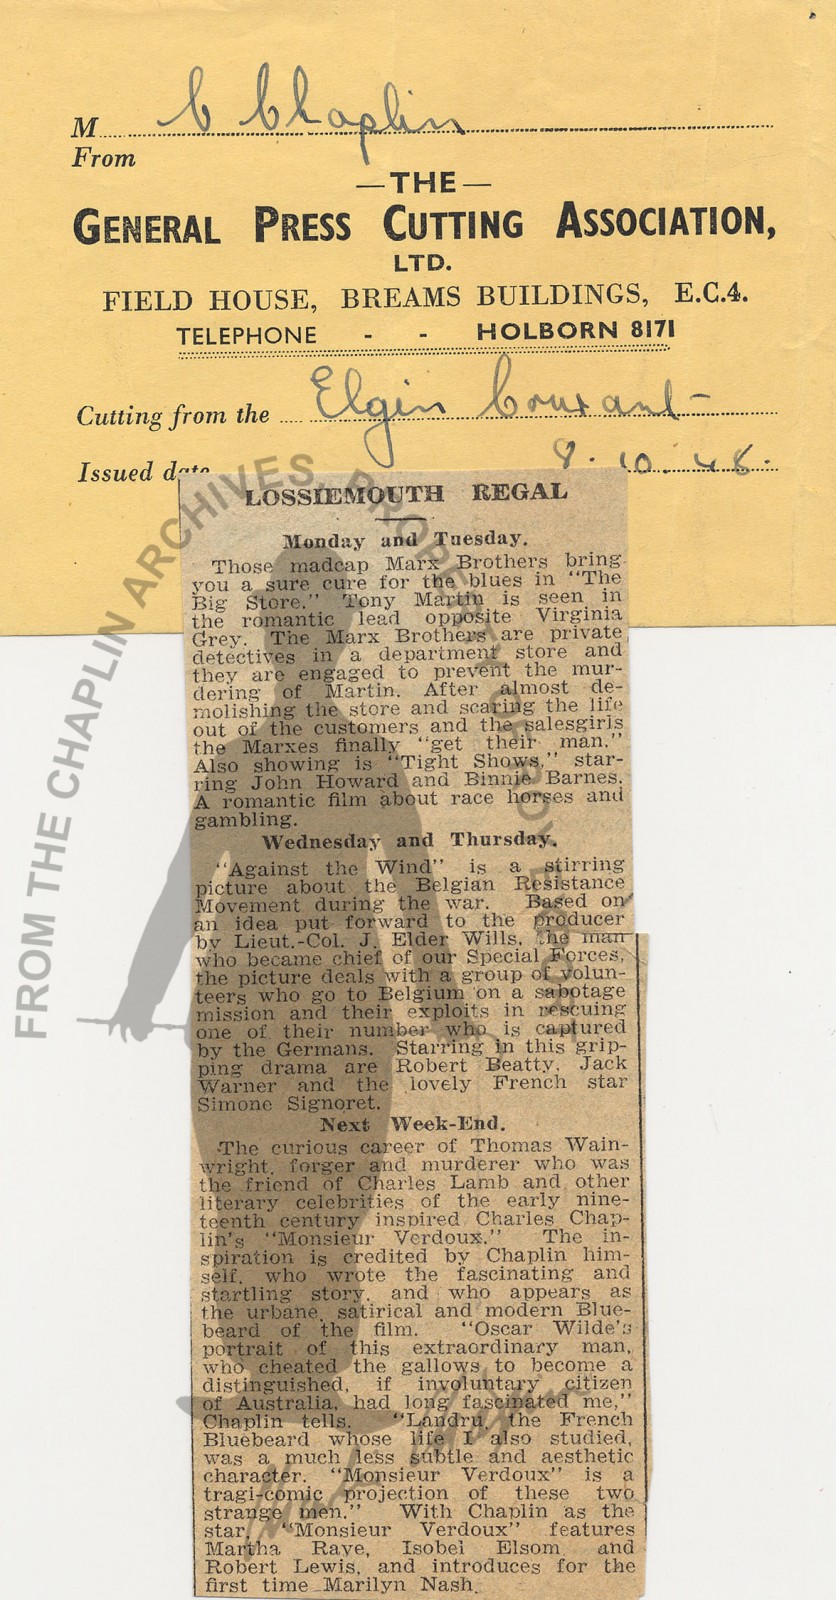 M C Chaplin
From
—THE—
GENERAL PRESS CUTTING ASSOCIATION,
LTD.
FIELD HOUSE, BREAMS BUILDINGS, E.C.4.
TELEPHONE - - HOLBORN 8171
Cutting from the Elgin Courant
Issued date 8.10.48.
LOSSIEMOUTH REGAL
Monday and Tuesday.
Those madcap Marx Brothers bring
you a sure cure for the blues in "The
Big Store." Tony Martin is seen in
the romantic lead opposite Virginia
Grey. The Marx Brothers are private
detectives in a department store and
they are engaged to prevent the mur-
dering of Martin. After almost de-
molishing the store and scaring the life
out of the customers and the salesgirls
the Marxes finally "get their man."
Also showing is "Tight Shows," star-
ring John Howard and Binnie Barnes.
A romantic film about race horses and
gambling.
Wednesday and Thursday.
"Against the Wind" is a stirring
picture about the Belgian Resistance
Movement during the war. Based on
an idea put forward to the producer
by Lieut.-Col. J. Elder Wills, the man
who became chief of our Special Forces,
the picture deals with a group of volun-
teers who go to Belgium on a sabotage
mission and their exploits in rescuing
one of their number who is captured
by the Germans. Starring in this grip-
ping drama are Robert Beatty, Jack
Warner and the lovely French star
Simone Signoret.
Next Week-End.
The curious career of Thomas Wain-
wright, forger and murderer who was
the friend of Charles Lamb and other
literary celebrities of the early nine-
teenth century inspired Charles Chap-
lin's "Monsieur Verdoux." The in-
spiration is credited by Chaplin him-
self, who wrote the fascinating and
startling story, and who appears as
the urbane, satirical and modern Blue-
beard of the film. "Oscar Wilde's
portrait of this extraordinary man,
who cheated the gallows to become a
distinguished, if involuntary citizen
of Australia, had long fascinated me,"
Chaplin tells. "Landru, the French
Bluebeard whose life I also studied,
was a much less subtle and aesthetic
character. "Monsieur Verdoux" is a
tragi-comic projection of these two
strange men." With Chaplin as the
star, "Monsieur Verdoux" features
Martha Raye, Isobel Elsom and
Robert Lewis, and introduces for the
first time Marilyn Nash.
FROM THE CHAPLIN ARCHIVES, PROPERTY OF ROY EXPORT